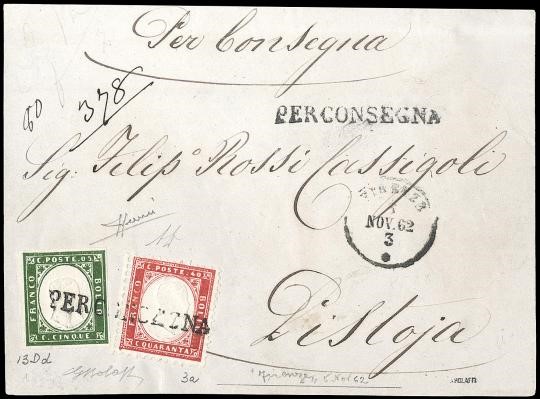 Per Consegna
60
378
PER CONSEGNA
Sig: Filip° Rossi Cassigoli
FIRENZE
NOV. 62
3
1d
Pistoja
C. POSTE. 05
FRANCO
BOLLO
C. CINQUE
C. POSTE. 40
FRANCO
BOLLO
QUARANTA
PER
13Dd
3a